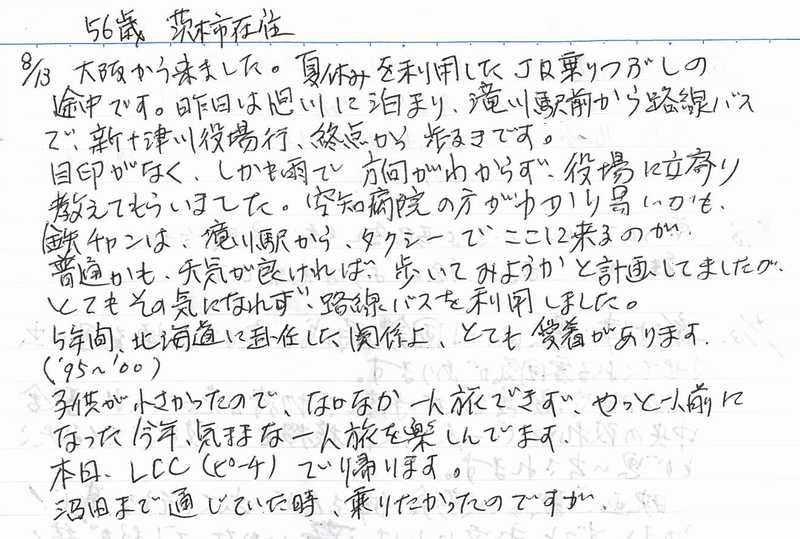 56歳 茨木市在住
8/13 大阪から来ました。夏休みを利用したJR乗りつぶしの
途中です。昨日は旭川に泊まり、滝川駅前から路線バス
で、新十津川役場行、終点から歩るきです。
目印がなく、しかも雨で方向がわからず、役場に立寄り
教えてもらいました。空知病院の方がわかり易いかも、
鉄チャンは、滝川駅から、タクシーでここに来るのが、
普通かも、天気が良ければ、歩いてみようかと計画してましたが、
とてもその気になれず、路線バスを利用しました。
5年間、北海道に赴任した関係上、とても愛着があります、
('95~'00)
子供が小さかったので、なかなか一人旅できず、やっと一人前に
なった今年、気ままな一人旅を楽しんでます、
本日、LCC(ピーチ)でり帰ります。
沼田まで通じていた時、乗りたかったのですが、